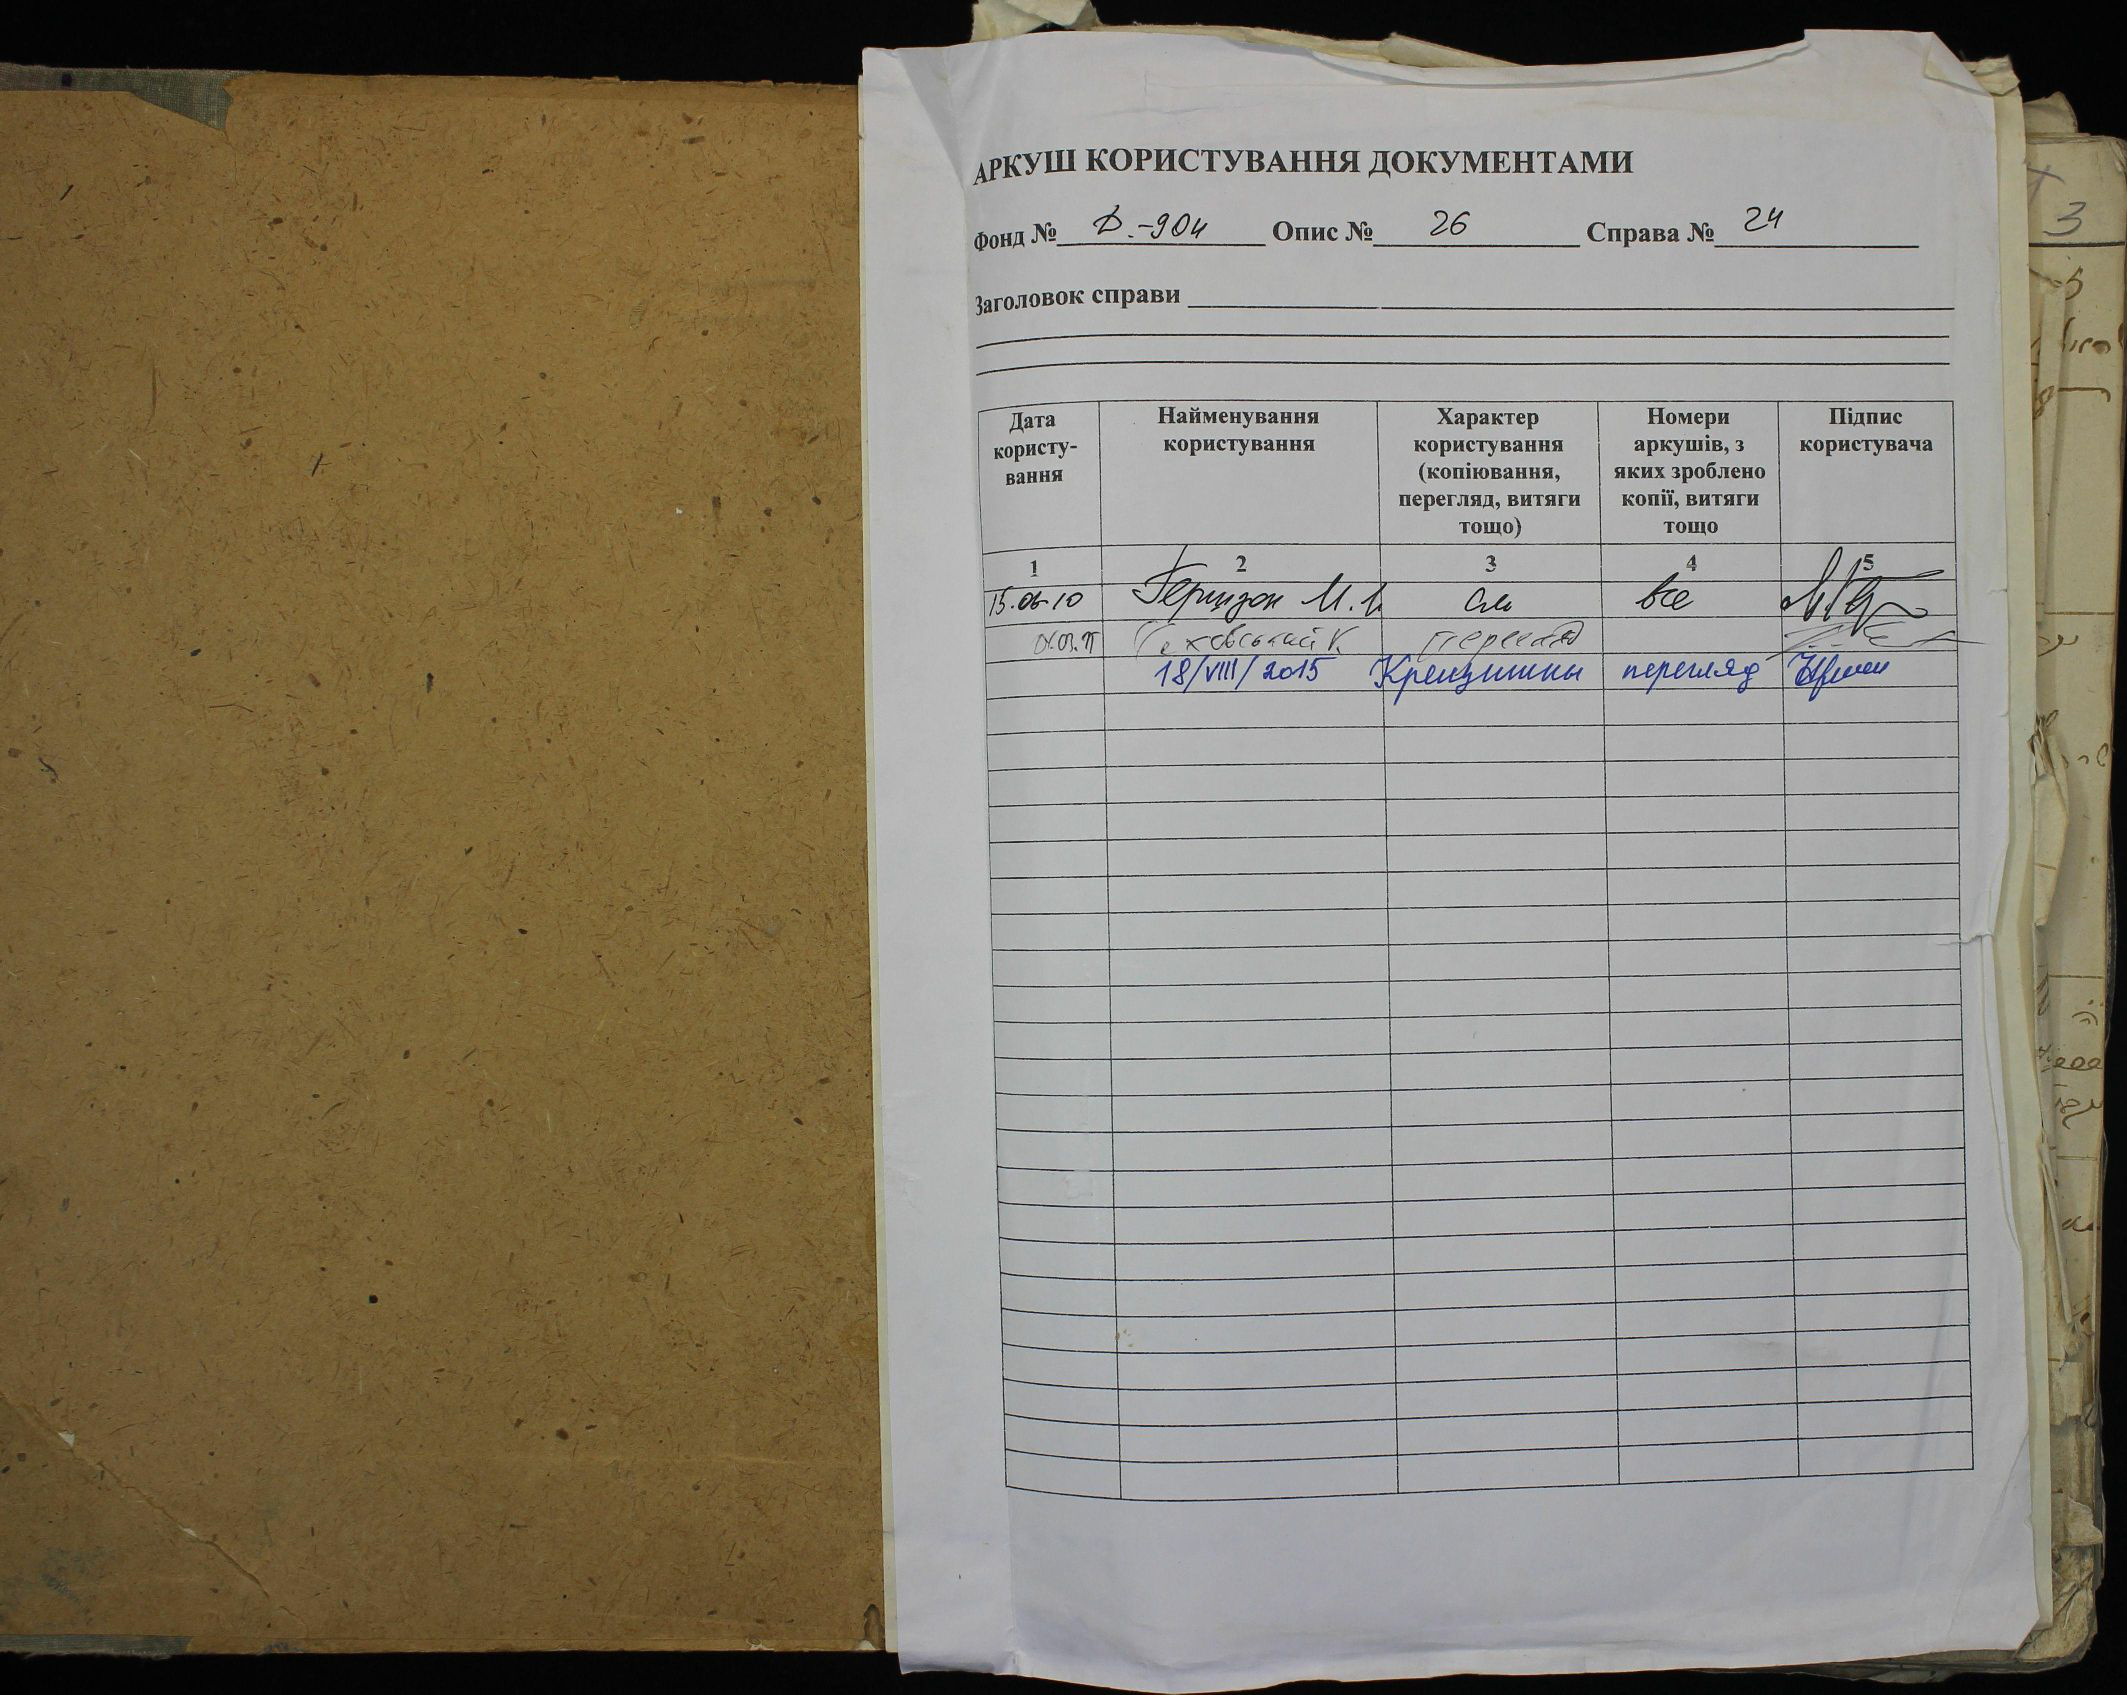 АРКУШ КОРИСТУВАННЯ ДОКУМЕНТАМИ
Фонд № Ф.-904 Опис № 26 Справа № 24
Заголовок справи
Дата користу-вання Найменування користування Характер користування (копіювання, перегляд, витяги тощо) Номери аркушів, з яких зроблено копії, витяги тощо Підпис користувача
1 2 3 4 5
15.06.10 см все
перегляд
18/VIII/2015 перегляд
3